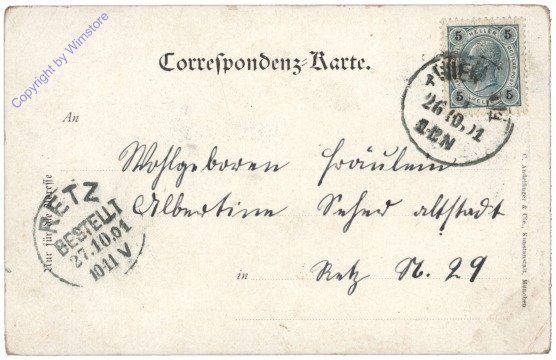 Copyright by Wimstore
Correspondenz-Karte.
5 HELLER 5
5 5
WIEN
26.10.01
An
Wohlgeboren Fräulein
Albertine Seher altstadt
in Retz N. 29
Nur für die Adresse
RETZ
BESTELLT
27.10.01
10-11 V
C. Andelfinger & Cie., Kunstanstalt, München.